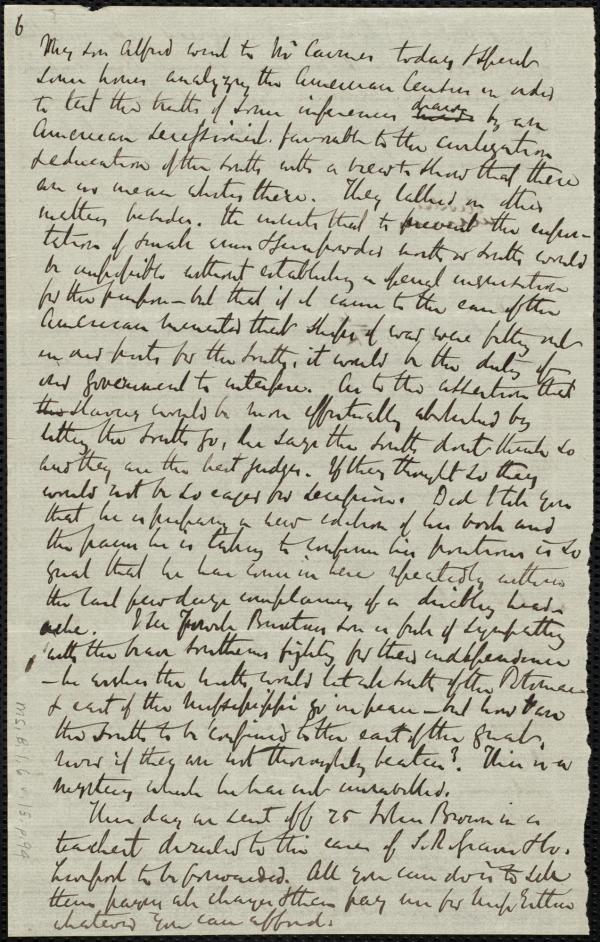 6
My son Alfred went to Mr Cairnes today & spent
some hours analyzing the American Census in order
to test the truth of some inferences drawn by an
American Secessionist favorable to the civilization
& education of the South with a view to show that there
are no mean whites there. They talked on other
matters besides. He insists that to prevent the expor-
tation of small arms & gunpowder north or South would
be impossible without establishing a penal inquisition
for the purpose – but that if it came to the ears of the
American ministers that ships of war were fitting out
in our ports for the South, it would be the duty of
our government to interfere. As to the assertion that
slavery would be more effectually abolished by
letting the South go, he says the South dont think so
and they are the best judges. If they thought so they
would not be so eager for secession. Did I tell you
that he is preparing a new edition of his book and
the pains he is taking to confirm his positions is so
great that he has come in here repeatedly within
the last few days complaining of a dreadful head-
ache. I see Fowell Buxton's son is full of sympathy
with the brave Southerns fighting for their independence
– he wishes the North would let all South of the Potomac
& east of the Mississippi go in peace – but how are
the South to be confined to the east of the great
river if they are not thoroughly beaten? This is a
mystery which he has not unravelled.
This day we sent off 25 John Brown in a
teachest directed to the care of S. R. Graves & Co.
Liverpool to be forwarded. All you can do is to sell
them paying all charges & then pay me for Miss Estlin
whatever you can afford.
MS.B.1.6 v.15, p.9a